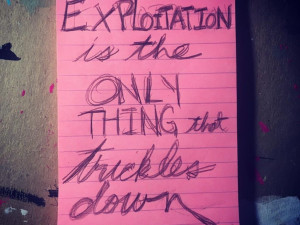 EXPLOITATION
is the
ONLY
THING that
trickles
down